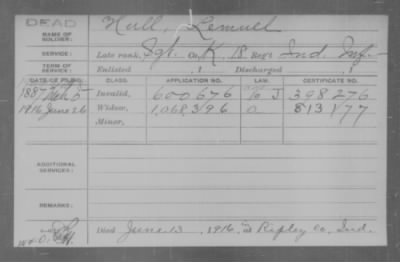 DEAD
NAME OF SOLDIER: Hull, Lemuel
SERVICE: Late rank, Sgt. Co. K, 18 Reg't Ind. Inf.
TERM OF SERVICE: Enlisted , 1 Discharged , 1
DATE OF FILING. CLASS. APPLICATION NO. LAW. CERTIFICATE NO.
1887 Invalid, 600,676 J 398276
1916 June 26 Widow, 1,068,396 O 813177
Minor,
ADDITIONAL SERVICES:
REMARKS:
Died June 13, 1916, at Ripley Co. Ind.